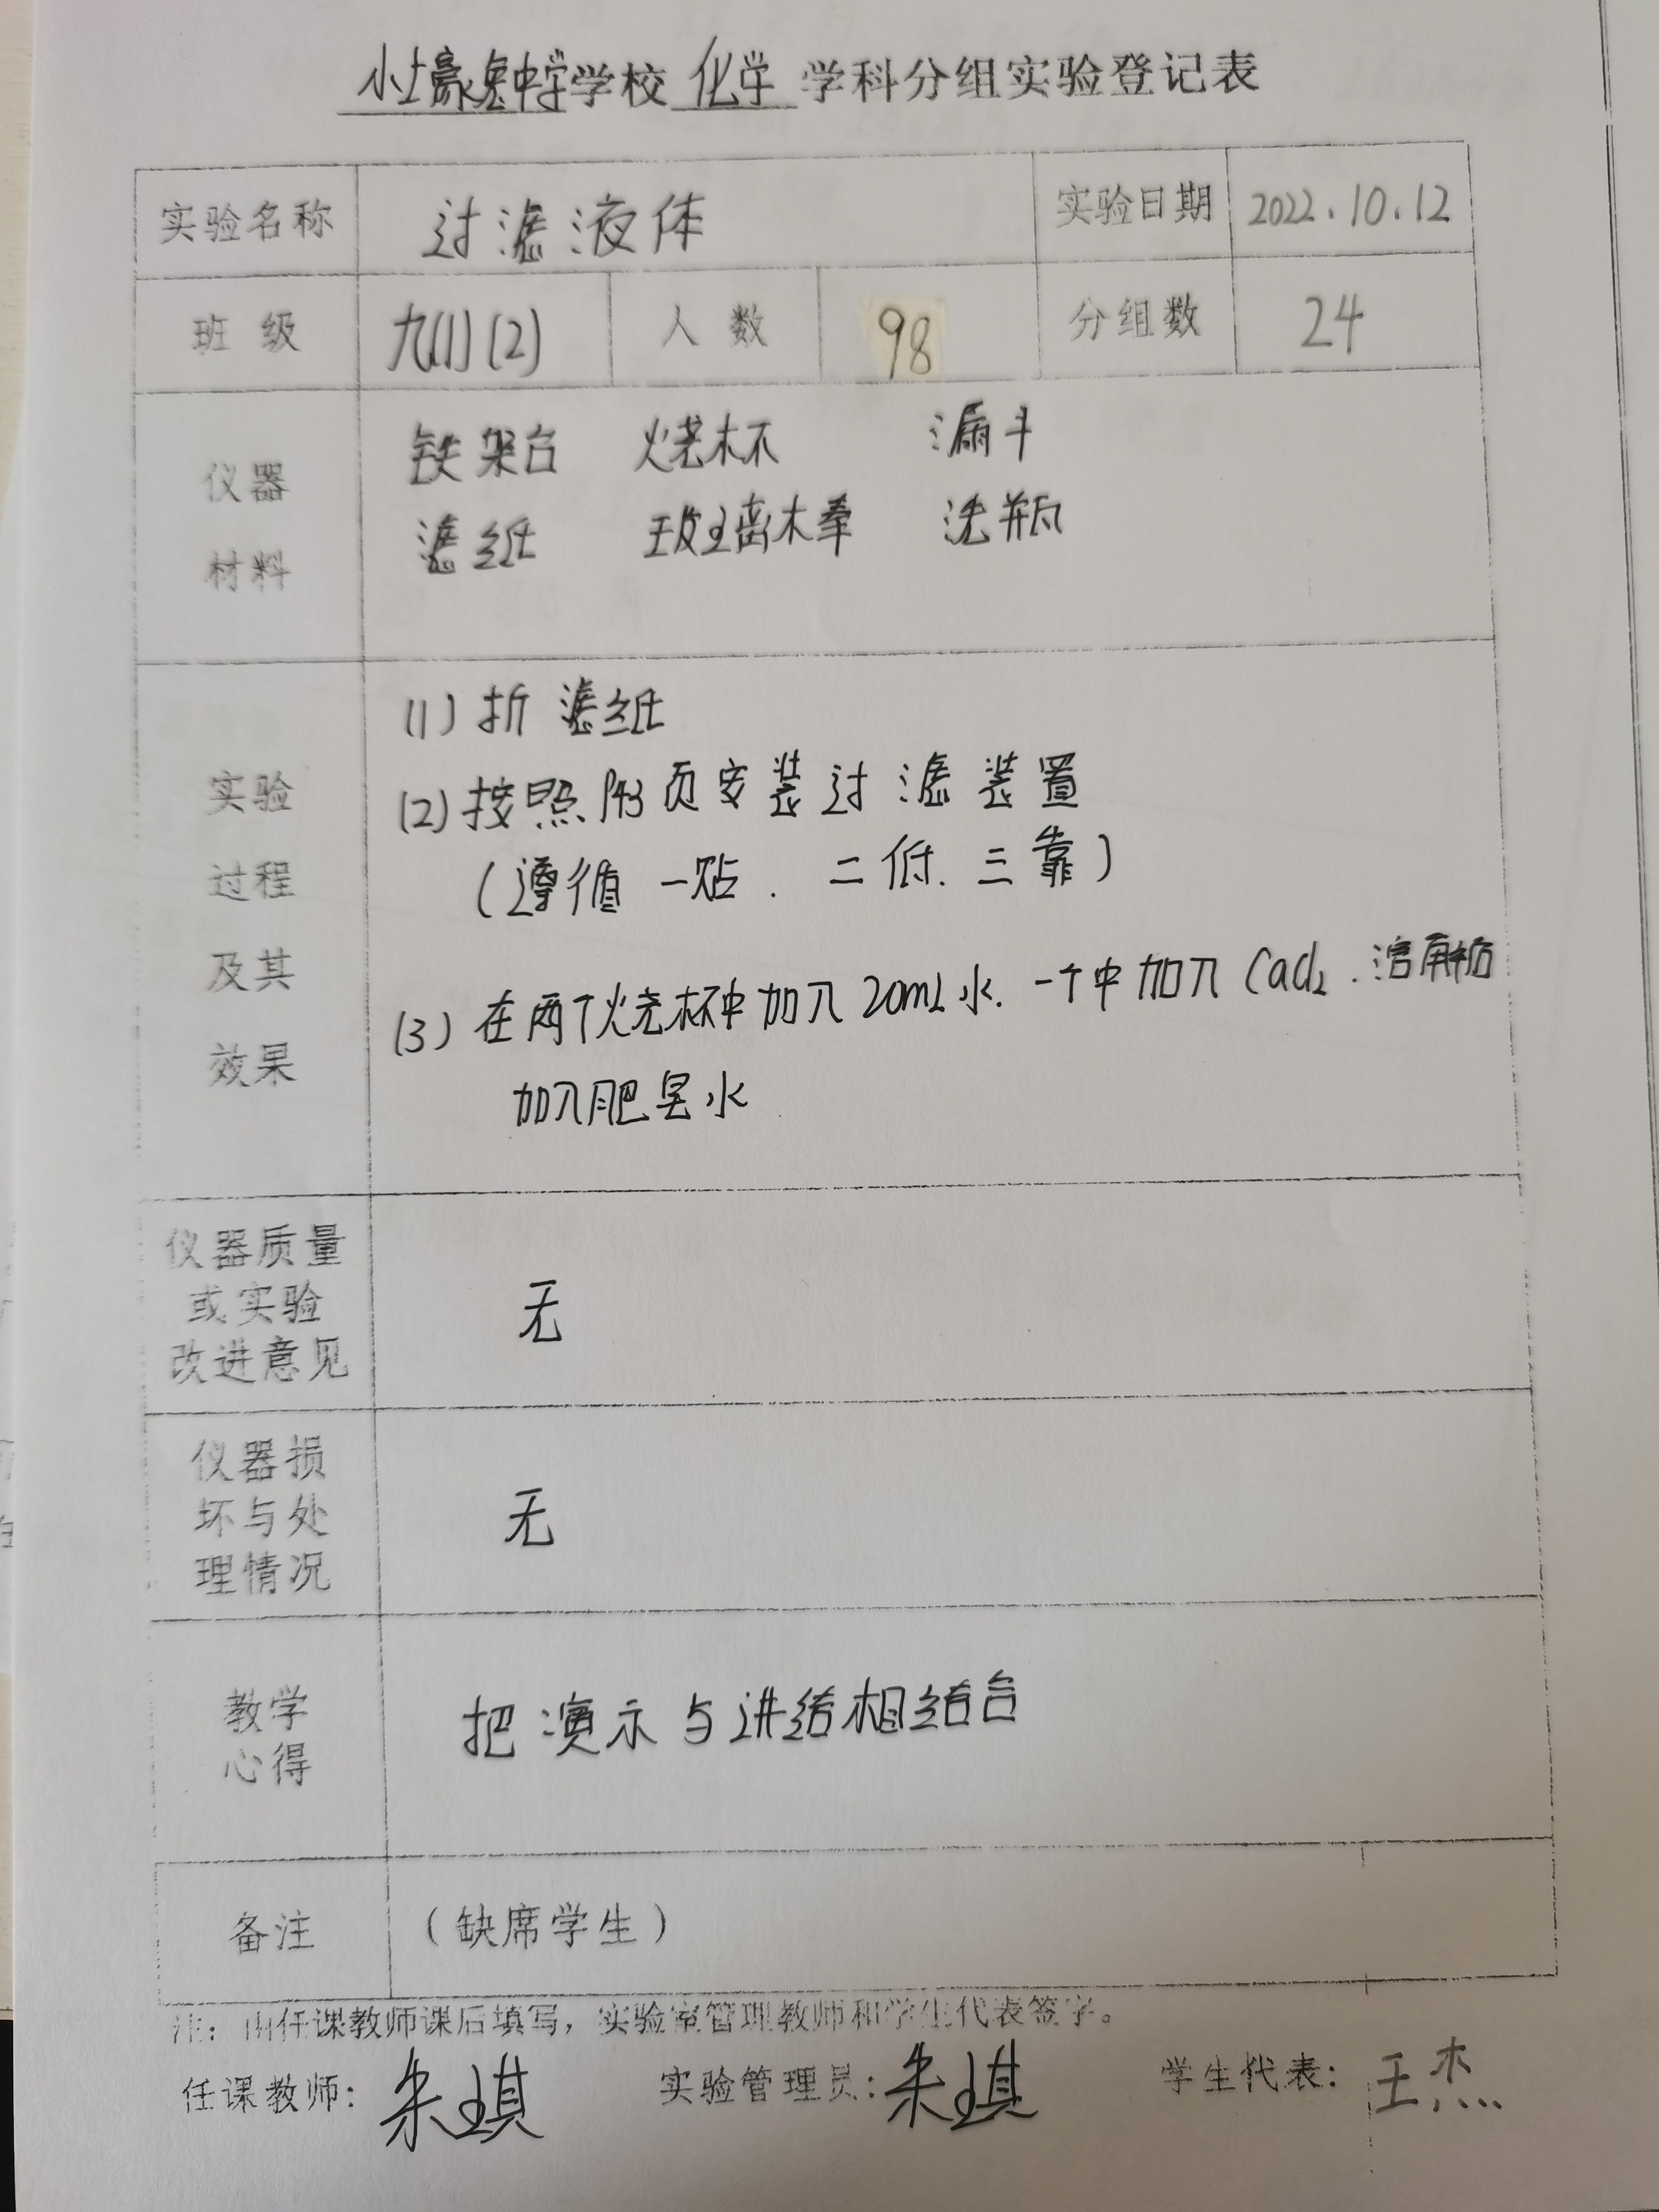 小土豪兔中学学校 化学 学科分组实验登记表
实验名称 过滤液体 实验日期 2022.10.12
班 级 九(1)(2) 人 数 98 分组数 24
仪器
材料
铁架台 烧杯 漏斗
滤纸 玻璃棒 洗瓶
实验
过程
及其
效果
(1) 折滤纸
(2) 按照P43页安装过滤装置
(遵循一贴.二低.三靠)
(3) 在两个烧杯中加入20mL水.一个中加入CaCl2.溶解后
加入肥皂水
仪器质量
或实验
改进意见
无
仪器损
坏与处
理情况
无
教学
心得
把演示与讲结相结合
备注
(缺席学生)
注:由任课教师课后填写,实验室管理教师和学生代表签字。
任课教师:朱琪 实验管理员:朱琪 学生代表:王杰